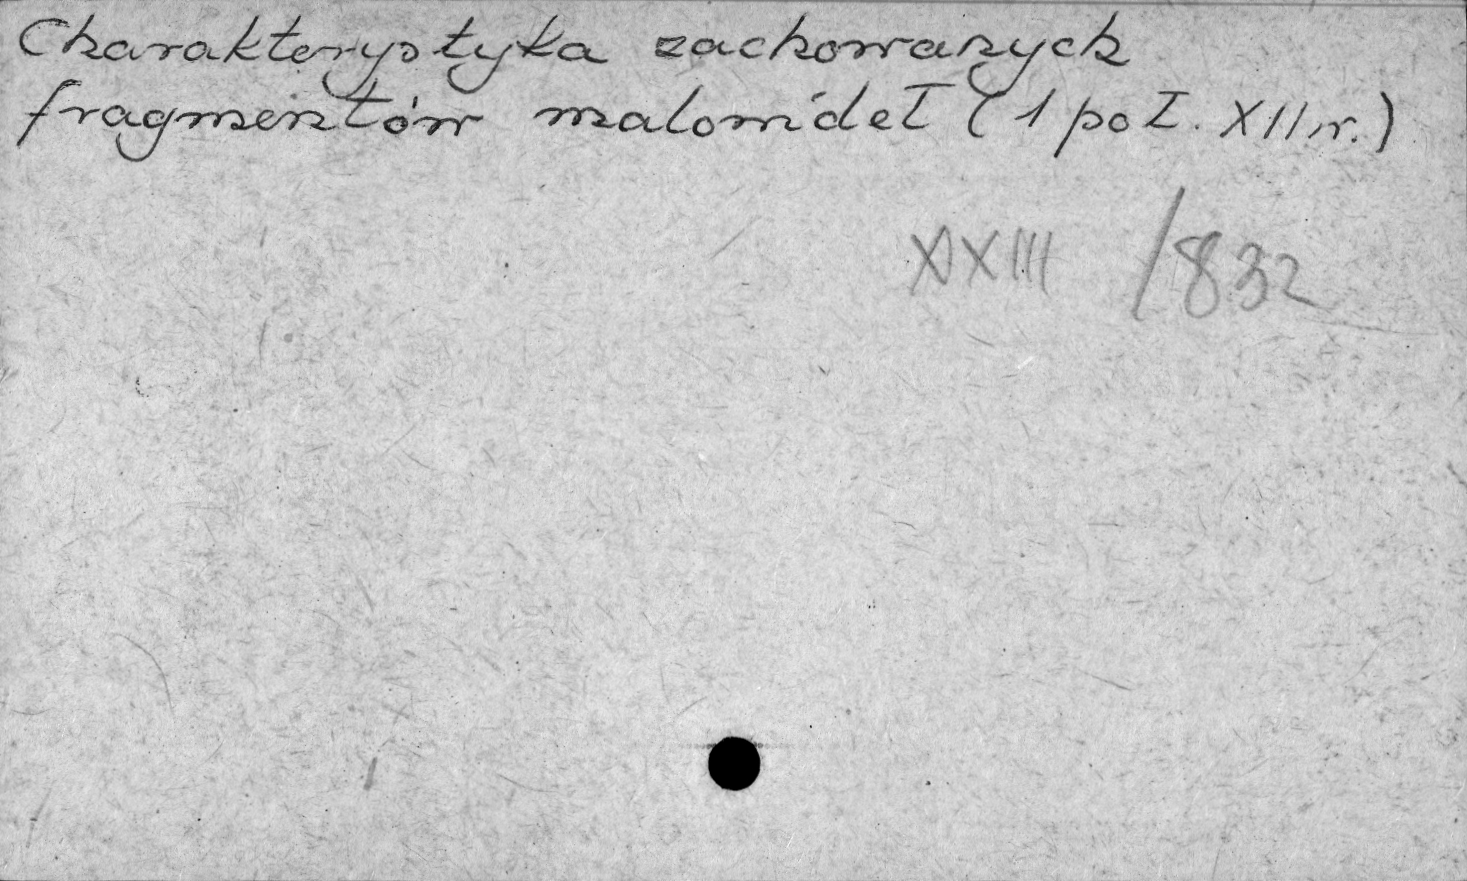 Charakterystyka zachowanych
fragmentów malowideł (1 poł. XII w.)
XXIII /832